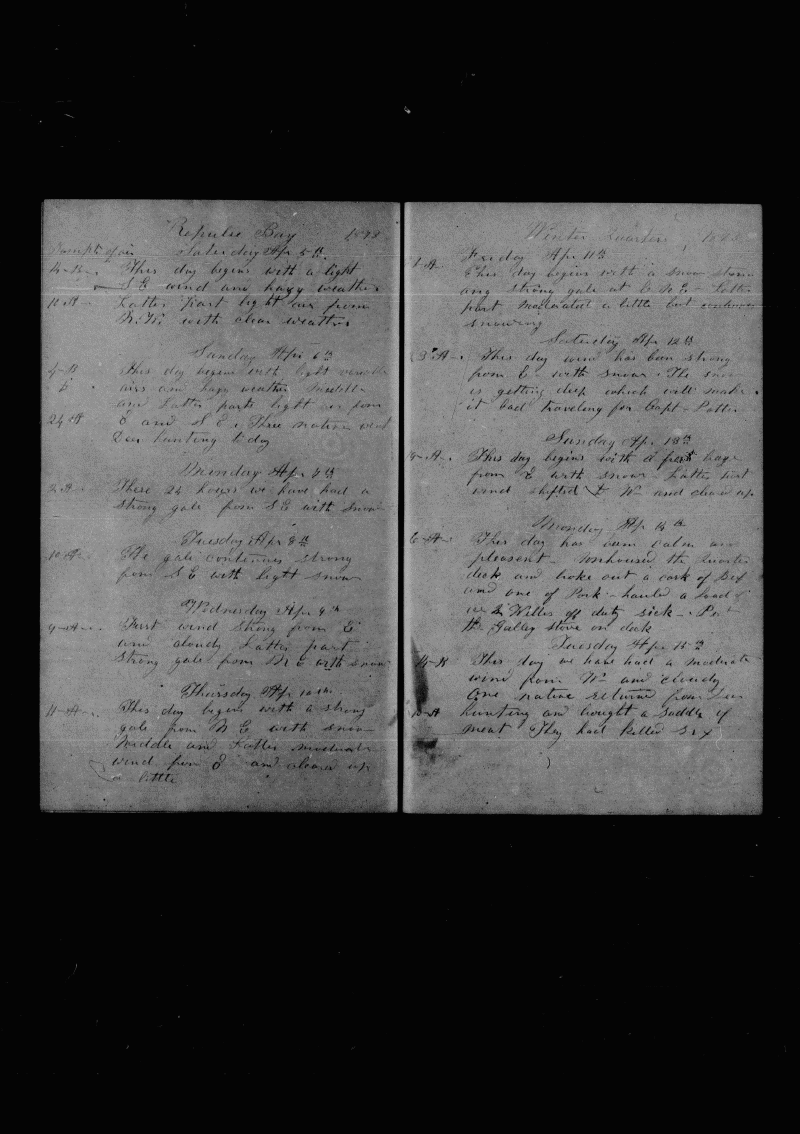 Repulse Bay 1878
of air Saturday Apr 5th
This day begins with a light
S.E. wind and hazy weather
10-A- Latter part light air from
N.W. with clear weather
Sunday Apr 6th
4-B This day begins with light variable
airs and hazy weather Middle
and Latter parts light air from
24-A E and S.E. Three natives went
Deer hunting to day
Monday Apr 7th
2-B- These 24 hours we have had a
strong gale from S.E with snow
Tuesday Apr 8th
10-A- The gale continues strong
from S.E with light snow
Wednesday Apr 9th
9-A- First wind strong from E
and cloudy Latter part
strong gale from N.E with snow
Thursday Apr 10th
11-A- This day begins with a strong
gale from N.E with snow
Middle and Latter moderate
wind from E and cleared up
a little
Winter Quarters
Friday Apr 11th
This day begins with a snow storm
and strong gale at E.N.E- Latter
part moderated a little but continues
snowing
Saturday Apr 12th
3-A- This day wind has been strong
from E- with snow. The snow
is getting deep which will make
it bad traveling for Capt- Potter
Sunday Apr 13th
-A- This day begins with a
from E with snow- Latter part
wind shifted to W and cleared up
Monday Apr 14th
6-A- This day has been calm and
pleasant- unhoused the Quarter
deck and broke out a cask of Beef
and one of Pork- hauled a load of
ice Willes off duty sick-
the Galley stove on deck
Tuesday Apr 15th
14-B This day we have had a moderate
wind from W and cloudy
One native returned from Deer
10-A hunting and bought a saddle of
meat They had killed six